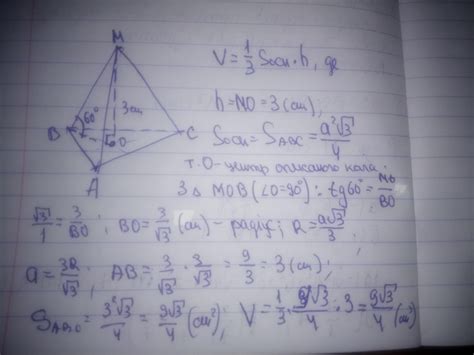 M
3 см
60°
B
O
C
A
V = 1/3 Sосн · h, де
h = MO = 3 (см);
Sосн = S△ABC = a²√3/4
т. O - центр описаного кола;
З △ MOB (∠O = 90°): tg 60° = MO/BO
√3/1 = 3/BO; BO = 3/√3 (см) - радіус; R = a√3/3
a = 3R/√3; AB = 3/√3 · 3/√3 = 9/3 = 3 (см);
S△ABC = 3²√3/4 = 9√3/4 (см²); V = 1/3 · 9√3/4 · 3 = 9√3/4 (см³)